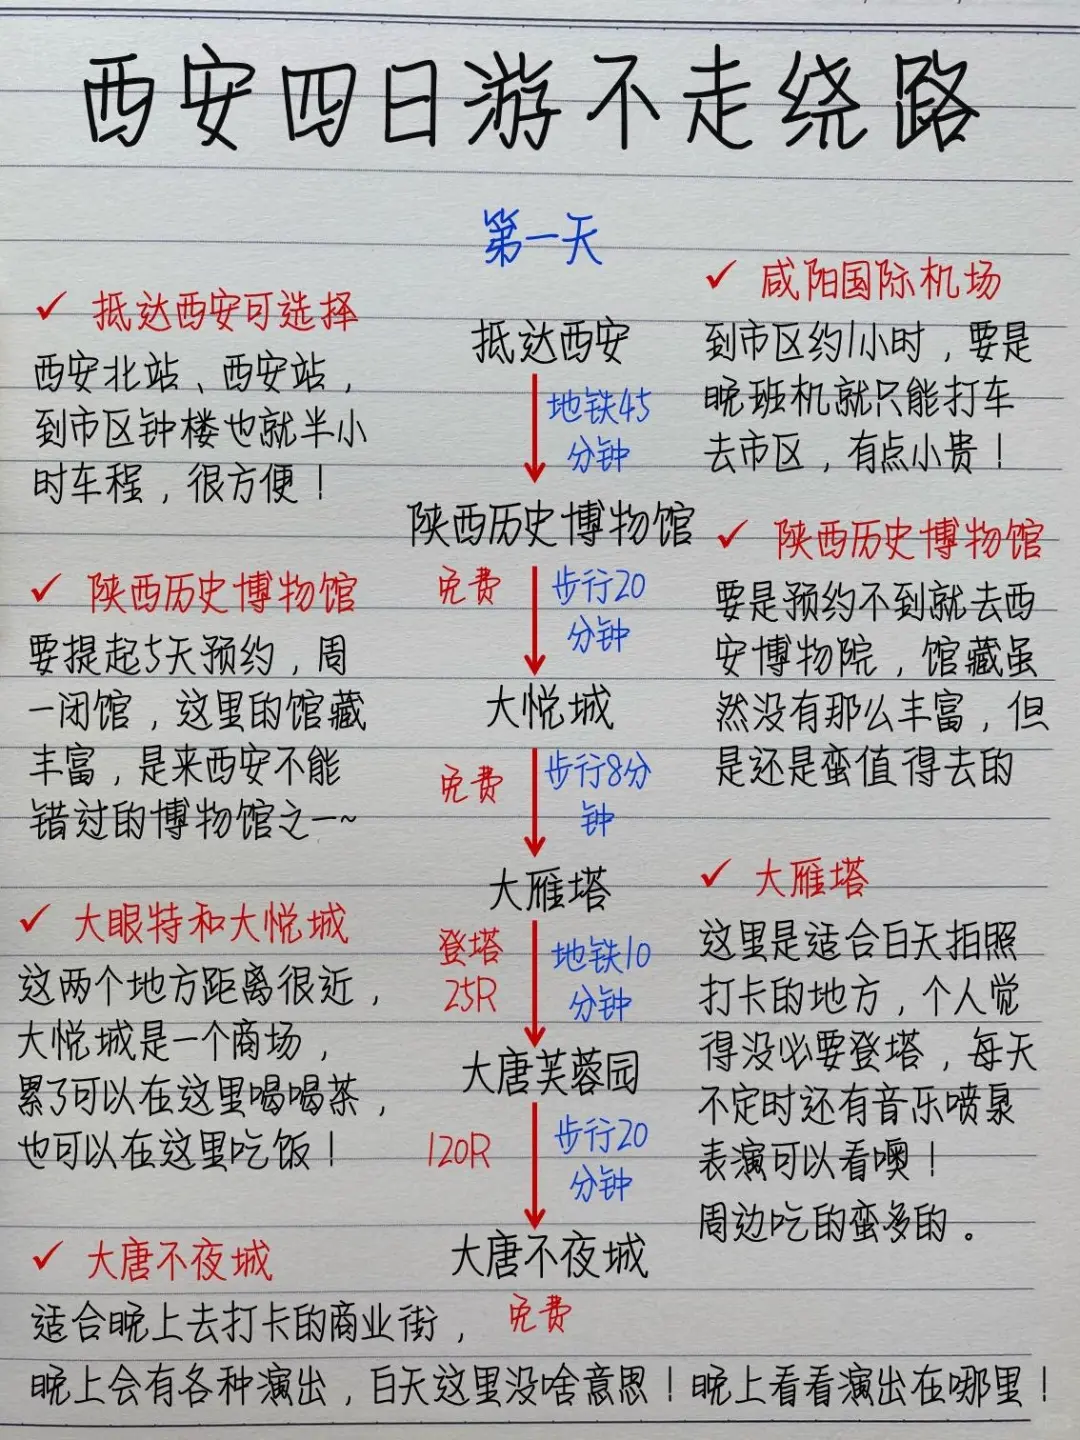 西安四日游不走绕路
第一天
✓ 抵达西安可选择
西安北站、西安站，
到市区钟楼也就半小
时车程，很方便！
✓ 咸阳国际机场
到市区约1小时，要是
晚班机就只能打车
去市区，有点小贵！
抵达西安
地铁45
分钟
陕西历史博物馆
免费
步行20
分钟
✓ 陕西历史博物馆
要提起5天预约，周
一闭馆，这里的馆藏
丰富，是来西安不能
错过的博物馆之一~
✓ 陕西历史博物馆
要是预约不到就去西
安博物院，馆藏虽
然没有那么丰富，但
是还是蛮值得去的
大悦城
免费
步行8分
钟
大雁塔
登塔
25R
地铁10
分钟
✓ 大眼特和大悦城
这两个地方距离很近，
大悦城是一个商场，
累了可以在这里喝喝茶，
也可以在这里吃饭！
✓ 大雁塔
这里是适合白天拍照
打卡的地方，个人觉
得没必要登塔，每天
不定时还有音乐喷泉
表演可以看噢！
周边吃的蛮多的。
大唐芙蓉园
120R
步行20
分钟
大唐不夜城
免费
✓ 大唐不夜城
适合晚上去打卡的商业街，
晚上会有各种演出，白天这里没啥意思！晚上看看演出在哪里！